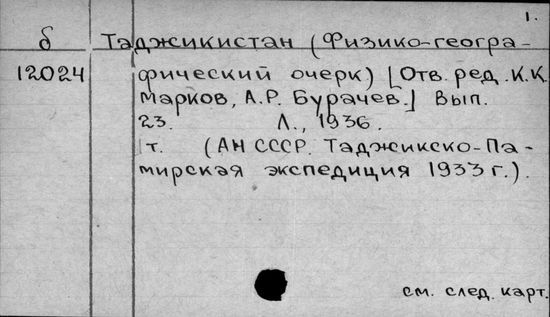 1.
б Таджикистан (Физико-геогра-
12024 фический очерк) [Отв. ред. К.К.
Марков, А.Р. Бурачев.] Вып.
23. Л., 1936.
1т. (АН СССР. Таджикско-Па-
мирская экспедиция 1933 г.).
см. след. карт.